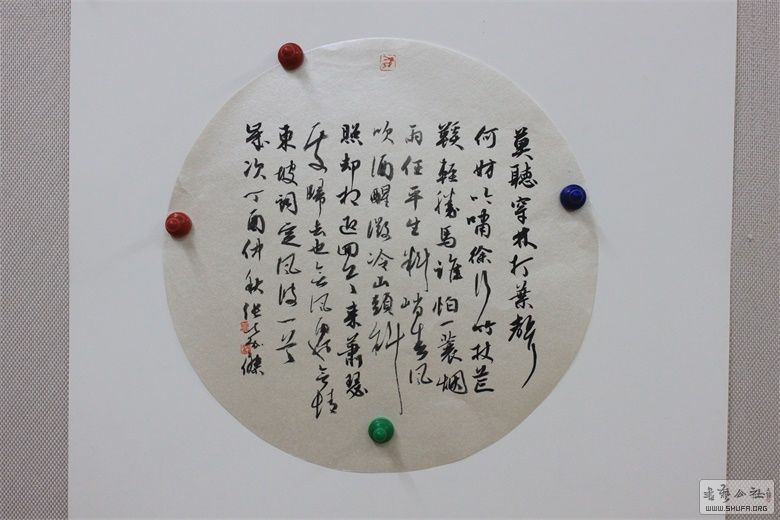 莫聽穿林打葉聲
何妨吟嘯徐行竹杖芒
鞋輕勝馬誰怕一蓑烟
雨任平生料峭春风
吹酒醒微冷山頭斜
照却相迎回首向来蕭瑟
處歸去也無风雨也無情
東坡詞定风波一首
歲次丁酉仲秋
書法公社
WWW.SHUFA.ORG